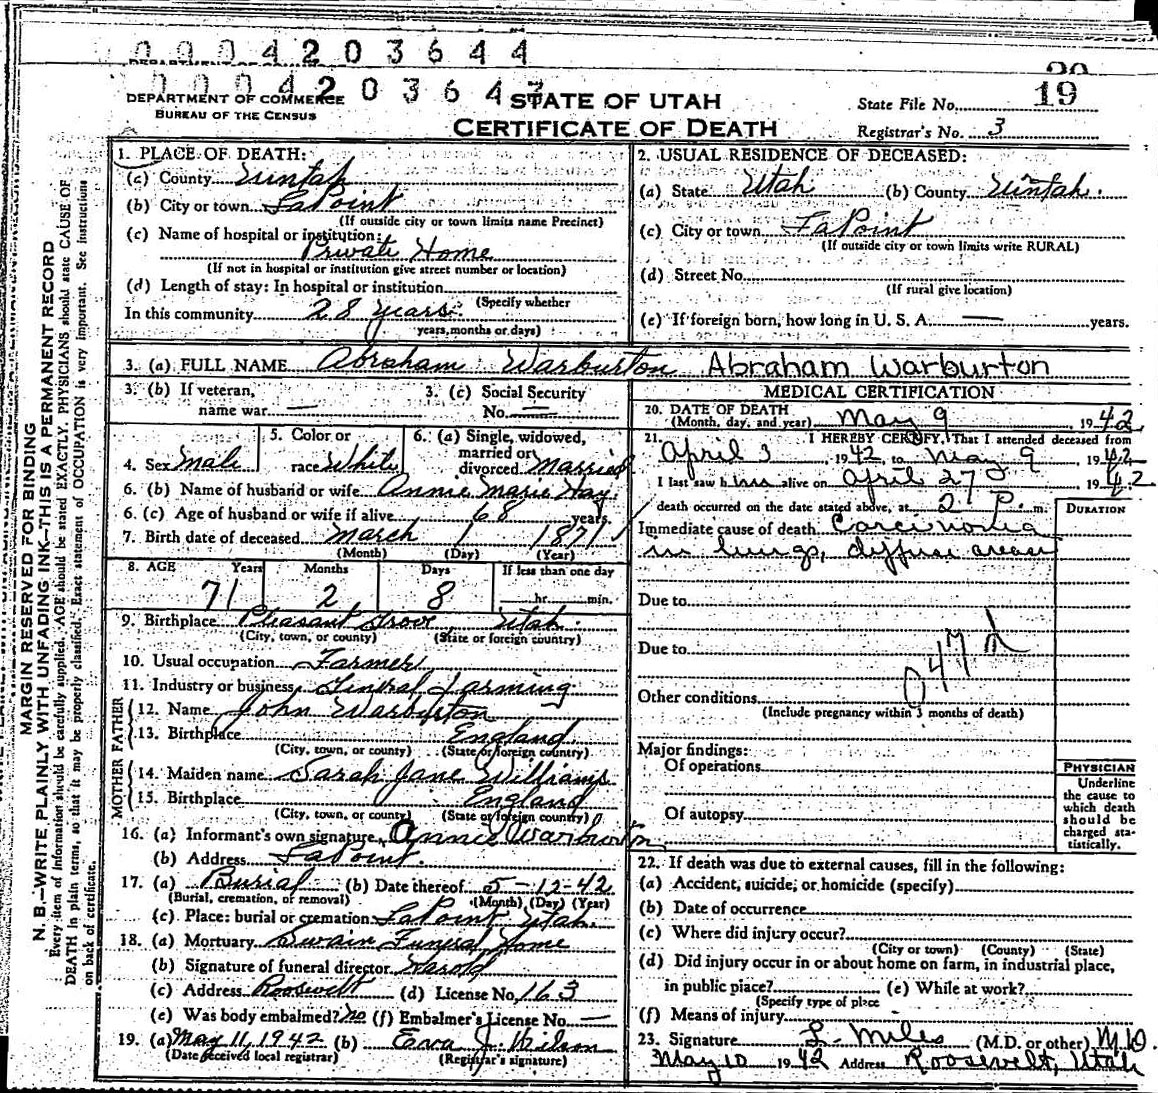 0004203644
DEPARTMENT OF COMMERCE
BUREAU OF THE CENSUS
STATE OF UTAH
CERTIFICATE OF DEATH
State File No. 19
Registrar's No. 3
MARGIN RESERVED FOR BINDING
N. B.—WRITE PLAINLY WITH UNFADING INK—THIS IS A PERMANENT RECORD
Every item of information should be carefully supplied. AGE should be stated EXACTLY. PHYSICIANS should state CAUSE OF
DEATH in plain terms, so that it may be properly classified. Exact statement of OCCUPATION is very important. See instructions
on back of certificate.
1. PLACE OF DEATH:
(a) County Uintah
(b) City or town LaPoint
(If outside city or town limits name Precinct)
(c) Name of hospital or institution:
Private Home
(If not in hospital or institution give street number or location)
(d) Length of stay: In hospital or institution
(Specify whether
In this community 28 years
years, months or days)
2. USUAL RESIDENCE OF DECEASED:
(a) State Utah (b) County Uintah.
(c) City or town LaPoint
(If outside city or town limits write RURAL)
(d) Street No.
(If rural give location)
(e) If foreign born, how long in U. S. A. — years.
3. (a) FULL NAME Abraham Warburton Abraham Warburton
3. (b) If veteran, name war —
3. (c) Social Security No. —
4. Sex Male
5. Color or race White
6. (a) Single, widowed, married or divorced Married
6. (b) Name of husband or wife Annie Marie Hay
6. (c) Age of husband or wife if alive 68 years
7. Birth date of deceased March 1 1871
(Month) (Day) (Year)
8. AGE Years Months Days If less than one day
71 2 8 hr. min.
9. Birthplace Pleasant Grove Utah.
(City, town, or county) (State or foreign country)
10. Usual occupation Farmer
11. Industry or business General Farming
FATHER
12. Name John Warburton
13. Birthplace England
(City, town, or county) (State or foreign country)
MOTHER
14. Maiden name Sarah Jane Williams
15. Birthplace England
(City, town, or county) (State or foreign country)
16. (a) Informant's own signature Annie Warburton
(b) Address LaPoint.
17. (a) Burial (b) Date thereof 5-12-42
(Burial, cremation, or removal) (Month) (Day) (Year)
(c) Place: burial or cremation LaPoint Utah.
18. (a) Mortuary Swain Funeral Home
(b) Signature of funeral director Harold
(c) Address Roosevelt (d) License No. 163
(e) Was body embalmed? No (f) Embalmer's License No. —
19. (a) May 11, 1942 (b) Eva J. Wilson
(Date received local registrar) (Registrar's signature)
MEDICAL CERTIFICATION
20. DATE OF DEATH
(Month, day, and year) May 9, 1942
21. I HEREBY CERTIFY, That I attended deceased from
April 3 1942 to May 9, 1942
I last saw him alive on April 27, 1942
death occurred on the date stated above, at 2 P. m.
DURATION
Immediate cause of death Carcinoma
in lungs, diffuse areas
Due to
Due to
047d
Other conditions
(Include pregnancy within 3 months of death)
Major findings:
Of operations
Of autopsy
PHYSICIAN
Underline
the cause to
which death
should be
charged sta-
tistically.
22. If death was due to external causes, fill in the following:
(a) Accident, suicide, or homicide (specify)
(b) Date of occurrence
(c) Where did injury occur?
(City or town) (County) (State)
(d) Did injury occur in or about home on farm, in industrial place,
in public place? (e) While at work?
(Specify type of place
(f) Means of injury
23. Signature L. Miles (M.D. or other) M.D.
May 10 1942 Address Roosevelt, Utah